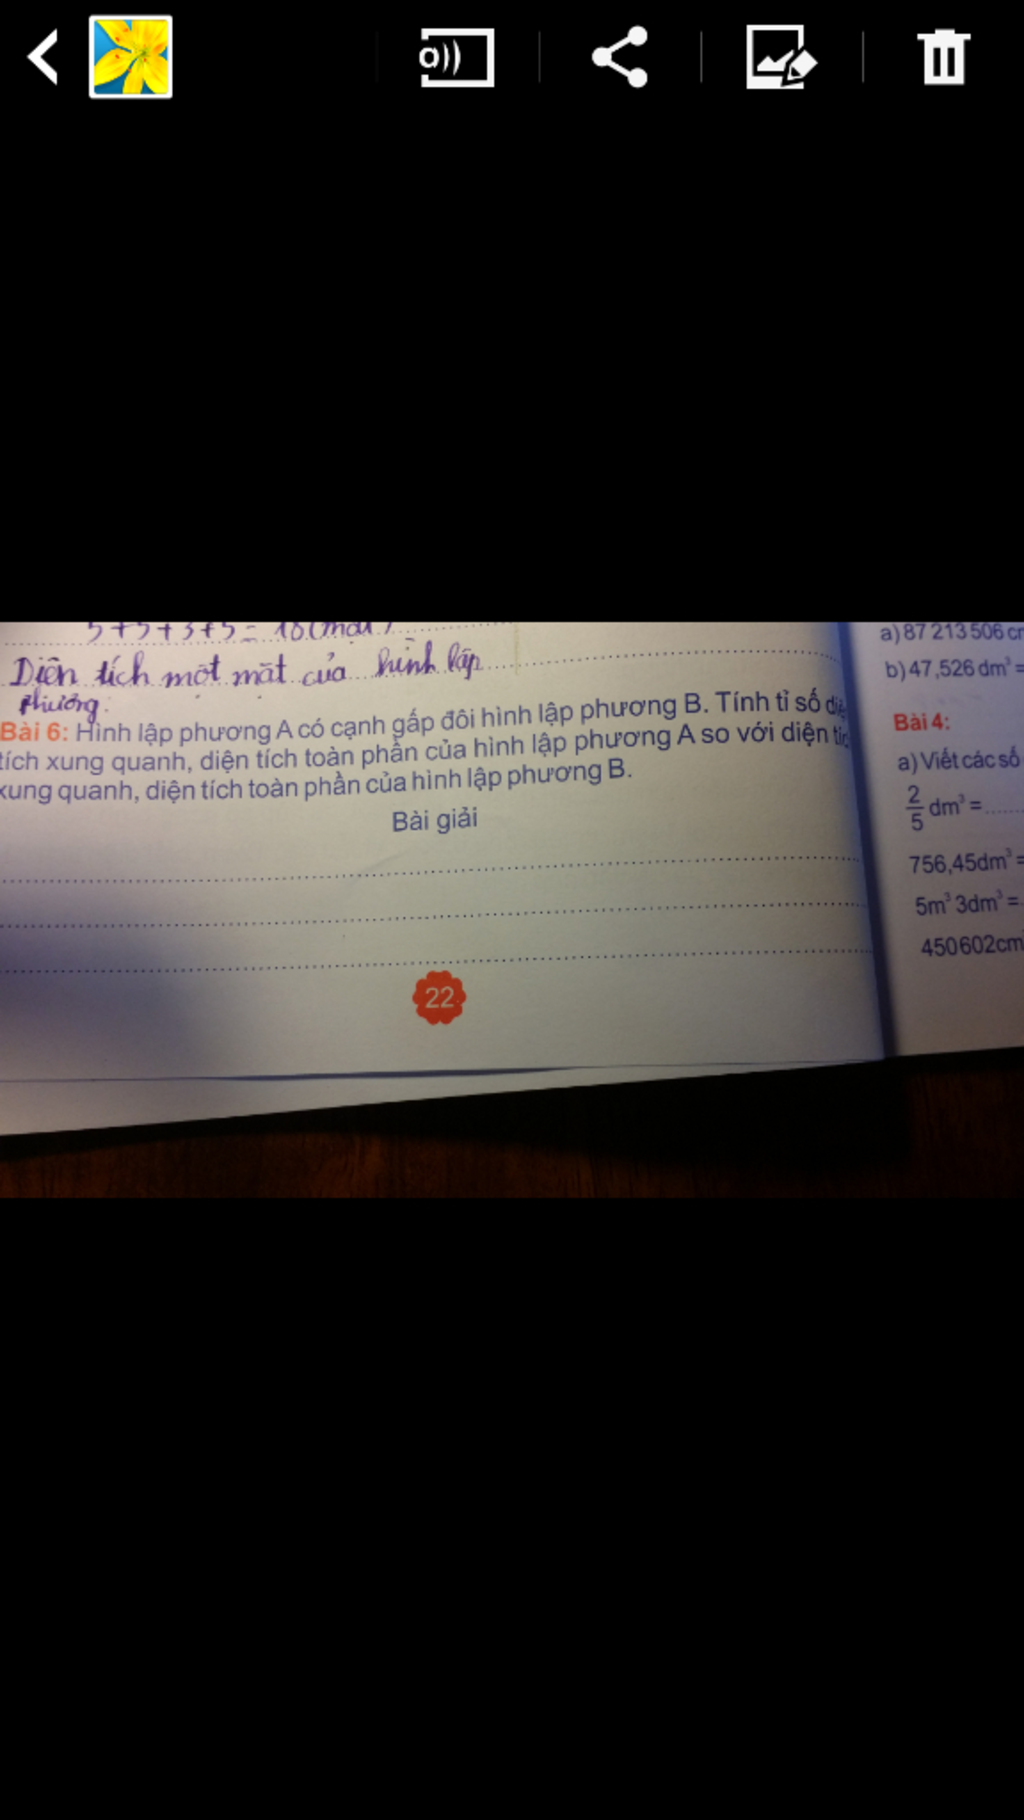 5+5+3+5= 18(mặt)
Diện tích một mặt của hình lập
phương:
Bài 6: Hình lập phương A có cạnh gấp đôi hình lập phương B. Tính tỉ số
tích xung quanh, diện tích toàn phần của hình lập phương A so với diện
xung quanh, diện tích toàn phần của hình lập phương B.
Bài giải
22
a) 87 213 506
b) 47,526 dm³ =
Bài 4:
a) Viết các số
2/5 dm³ =
756,45dm³ =
5m³ 3dm³ =
450 602cm